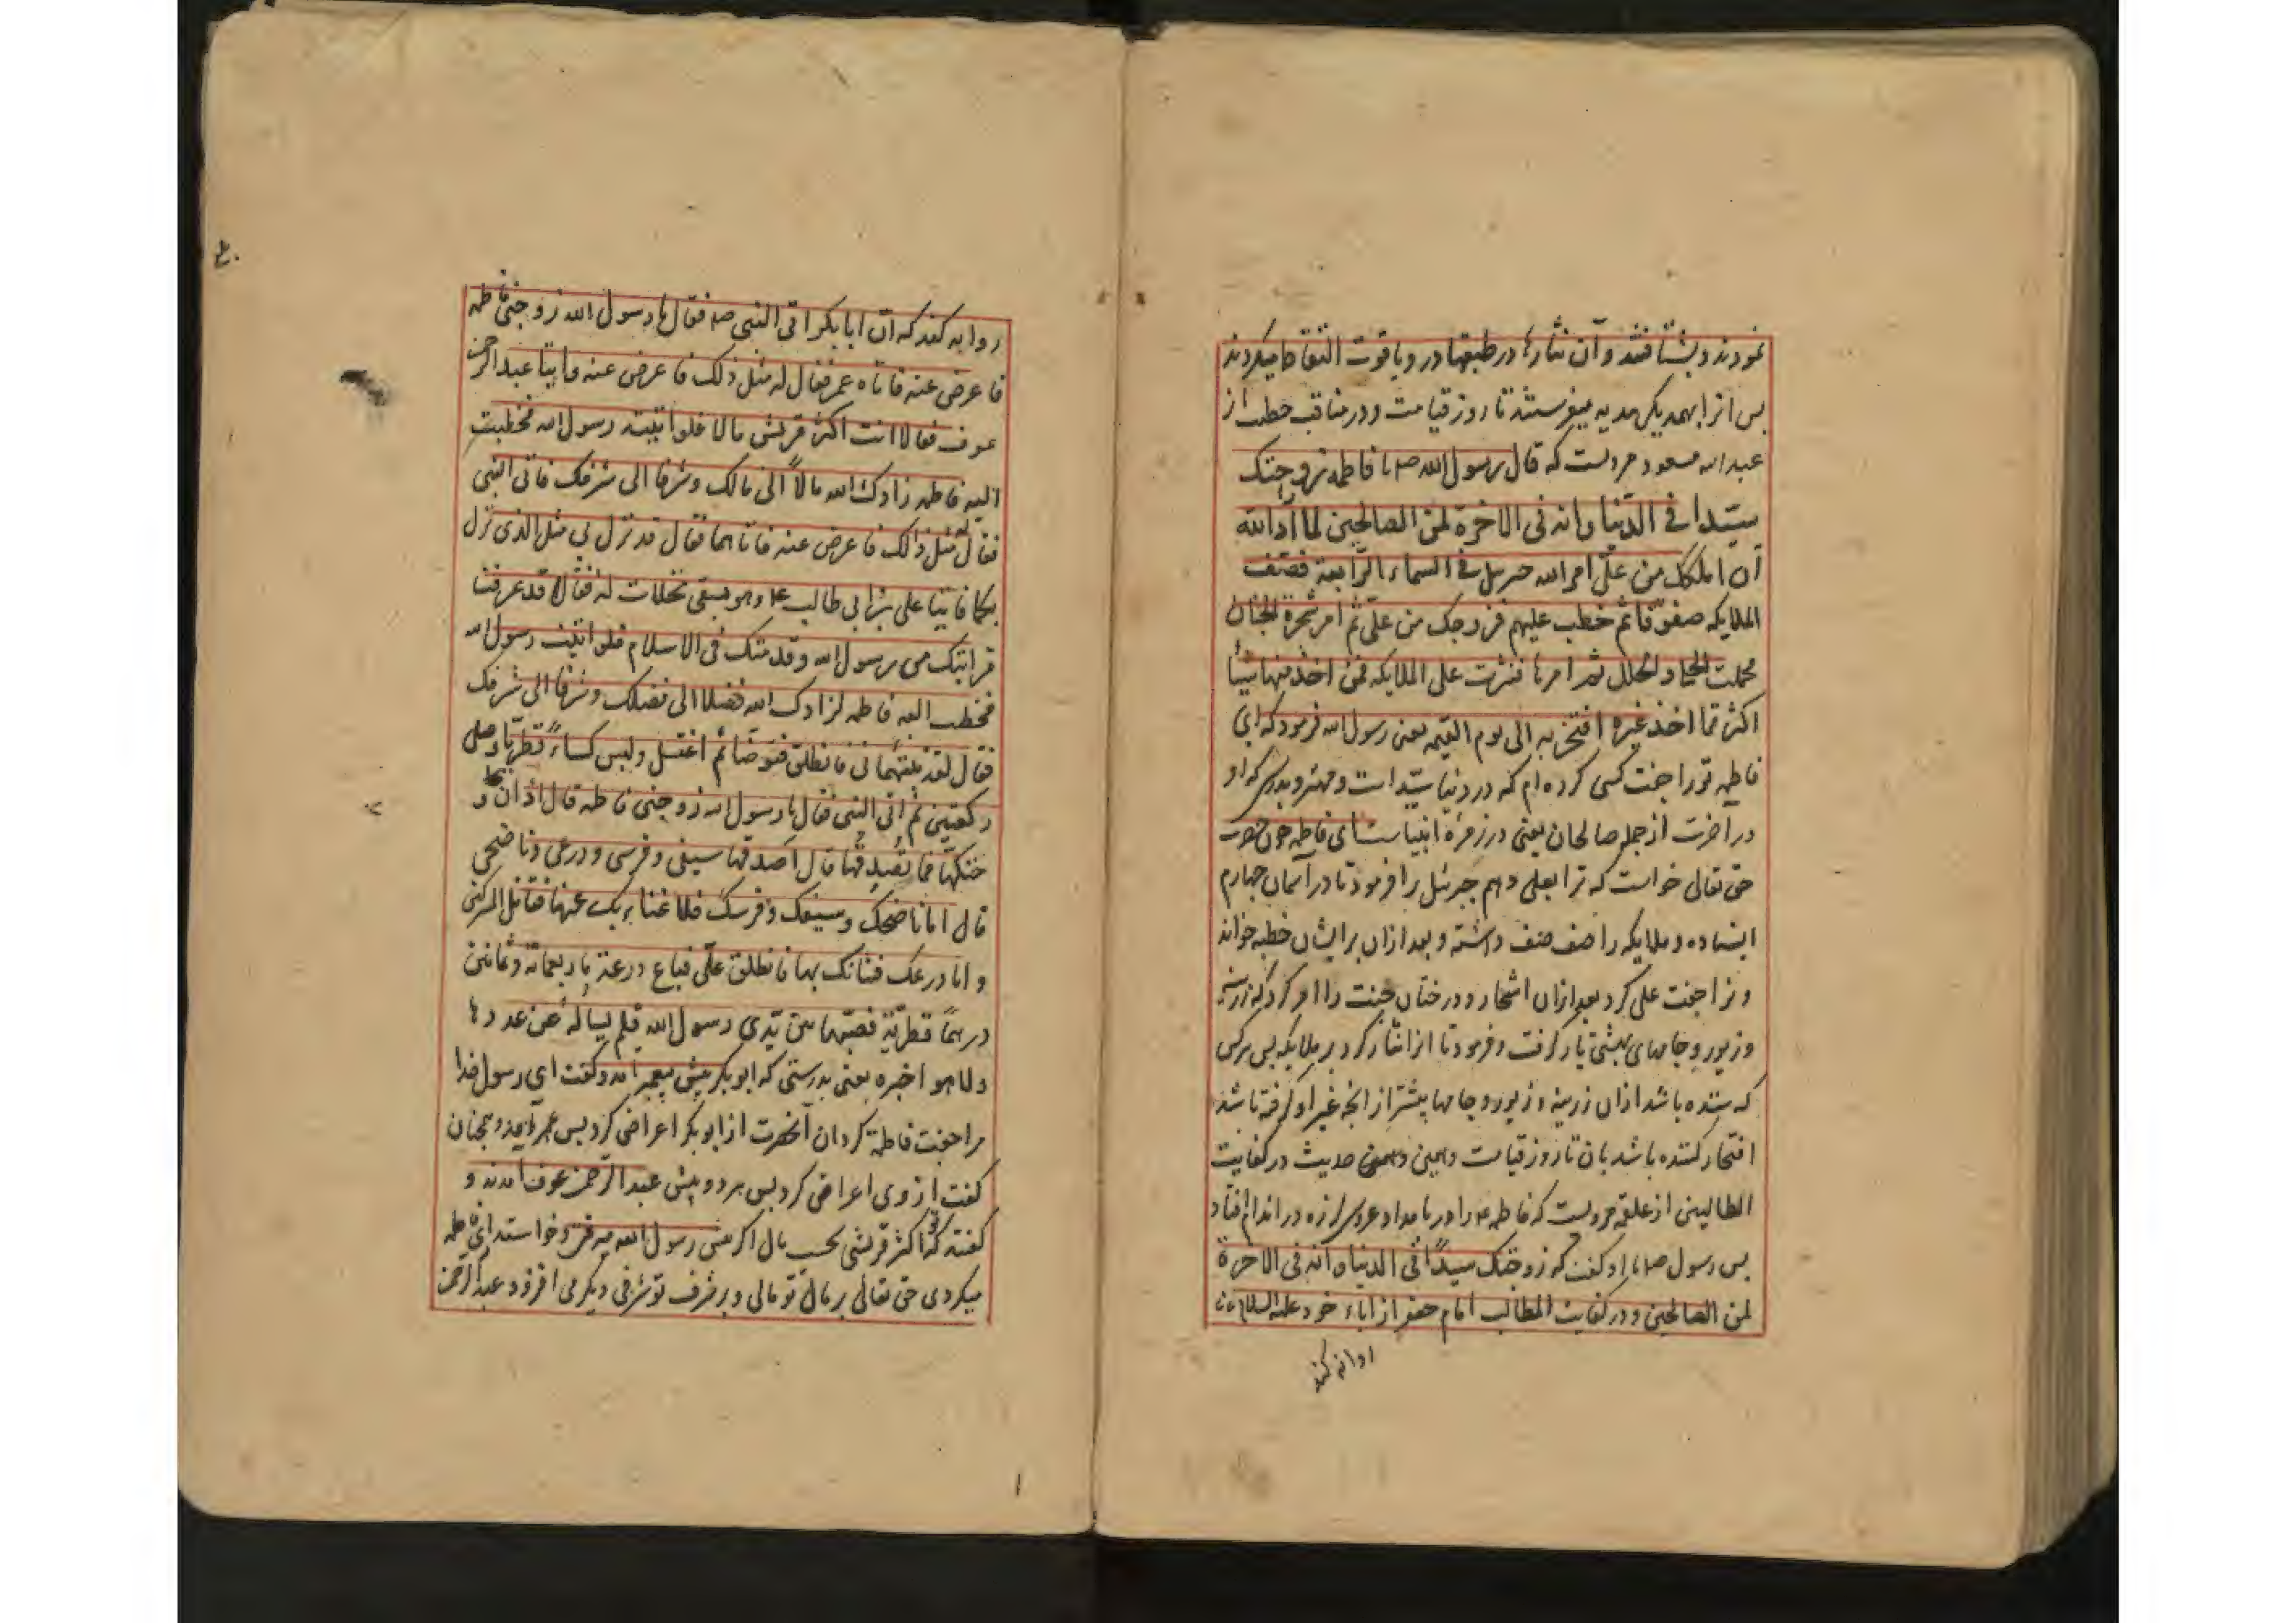 نمودند و بشتافتند و آن نثارها در طبقها در و یاقوت التقاط میکردند
پس انرا بهمدیکر هدیه میفرستند تا روز قیامت و در مناقب خطب از
عبد الله مسعود مرویست که قال رسول الله صم یا فاطمه زوجتک
سیّدا فی الدّنیا وانه فی الاخرة لمن الصالحین لما أراد الله
ان املکک من علیّ امر الله جبریل فی السماء الرّابعة فصّف
الملایکه صفوفا ثم خطب علیهم فزوجک من علیّ ثم امر شجرة الجنان
فحملت الحلی والحلل ثم امرها فنثرت علی الملایکه فمن اخذ منها شیئا
اکثر مما اخذ غیره افتخر به الی یوم القیمه یعنی رسول الله فرمود که ای
فاطمه تو را جفت کسی کرده ام که در دنیا سیّد است و مهتر و بدرستی که او
در اخرت از جمله صالحان یعنی در زمره انبیاست ای فاطمه چون حضرت
حق تعالی خواست که ترا بعلی دهم جبرئیل را فرمود تا در آسمان چهارم
ایستاده و ملایکه را صف صف داشته و بعد ازان برایشان خطبه خواند
و ترا جفت علی کرد بعد ازان اشجار و درختان جنت را امر کرد که زرینه
و زیور و جامهای بهشتی بار کرفت و فرمود تا انرا نثار کرد بر ملایکه پس هر کس
که ستده باشد ازان زرینه و زیور و جامها بیشتر از انچه غیر او کرفته باشد
افتخار کننده باشد بان تا روز قیامت و همین حدیث در کفایت
الطالبین از علقمه مرویست که فاطمه ع را در بامداد عروسی لرزه در اندام افتاد
پس رسول صم با او کفت که زوجتک سیّدًا فی الدنیا وانه فی الاخرة
لمن الصالحین و در کفایت المطالب امام جعفر از اباء خود علیه السلام
روایه کند
روایه کند که انّ ابا بکر اتی النبی صم فقال یا رسول الله زوجنی فاطمه
فاعرض عنه فاتاه عمر فقال له مثل ذلک فاعرض عنه فاتیا عبد الرحمن
عوف فقالا انت اکثر قریش مالا فلو اتیت رسول الله فخطبت
الیه فاطمه زادک الله مالاً الی مالک و شرفا الی شرفک فاتی النبی
فقال له مثل ذالک فاعرض عنه فاتاهما فقال قد نزل بی مثل الذی نزل
بکما فاتیا علی بن ابی طالب ع وهو یسقی نخلات له فقالا قد عرفنا
قرابتک من رسول الله و قدمتک فی الاسلام فلو اتیت رسول الله
فخطب الیه فاطمه لزادک الله فضلا الی فضلک و شرفا الی شرفک
فقال لقد نبهتمانی فانطلق فتوضّا ثم اغتسل و لبس کساءً قطریّا و صلی
رکعتین ثم اتی النبی فقال یا رسول الله زوجنی فاطمه قال اذا
زوجتکها فما تُصدِقُها قال اُصدقها سیفی و فرسی و درعی و ناضحی
قال اما ناضحک و سیفک و فرسک فلا غنا بک عنها فقاتل المشرکین
و اما درعک فشانک بها فانطلق علیّ فباع درعه باربعمائة و ثمانین
درهمًا قطریّة فصبّها بین یدی رسول الله فلم یسأله عن عددها
ولا هو اخبره یعنی بدرستی که ابو بکر پیش پیغمبر آمد و کفت ای رسول خدا
مرا جفت فاطمه کردان آنحضرت از ابو بکر اعراض کرد پس عمر آمد و همچنان
کفت از وی اعراض کرد پس هر دو پیش عبد الرّحمن عوف آمدند و
کفتند که تو اکثر قریشی بحسب مال اکر پیش رسول الله میرفتی و خواستداری فاطمه
میکردی حق تعالی بر مال تو مالی و بر شرف تو شرفی دیکر می افزود عبد الرّحمن